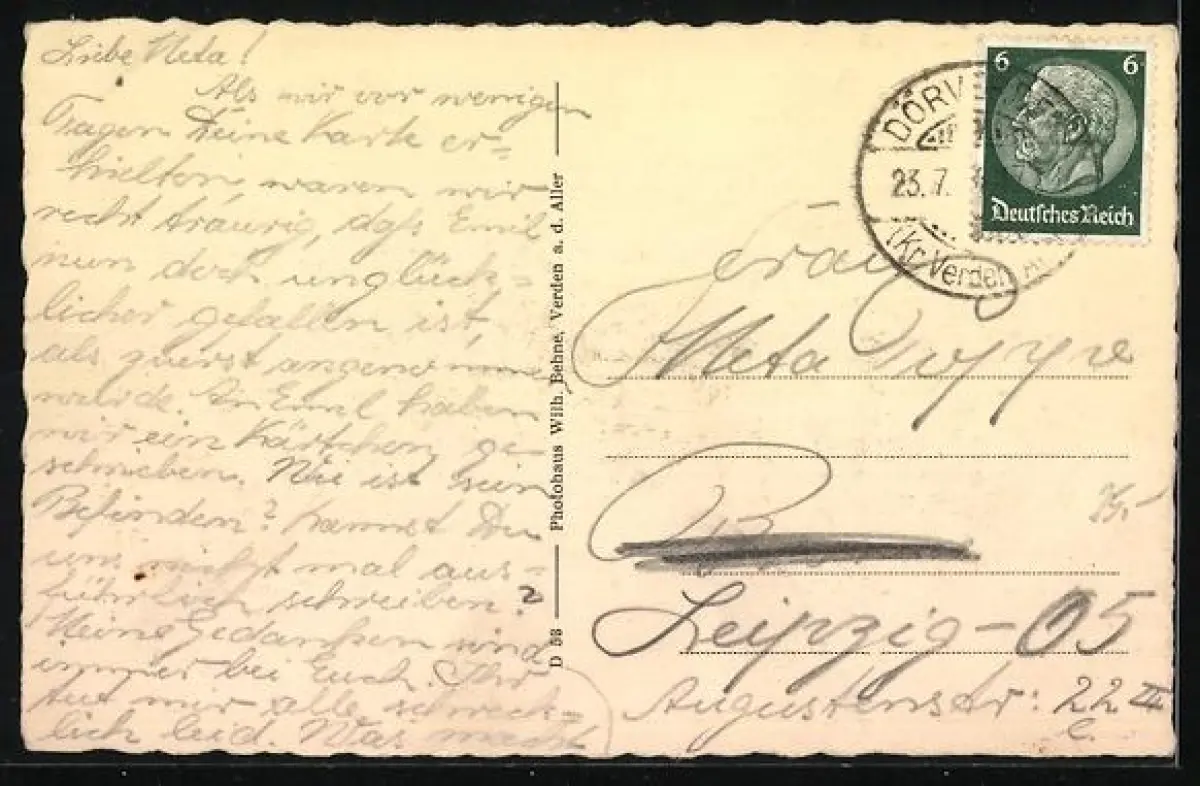 Liebe Meta!
Als wir vor wenigen
Tagen Deine Karte er-
hielten, waren wir
recht traurig, dass Emil
nun doch unglück-
licher gefallen ist,
als zuerst angenommen
wurde. An Emil haben
wir ein Kärtchen ge-
schrieben. Wie ist sein
Befinden? Kannst Du
uns nicht mal aus-
führlich schreiben?
Meine Gedanken sind
immer bei Euch. Ihr
tut mir alle schreck-
lich leid. Was macht
D 53 Photohaus Wilh. Behne, Verden a. d. Aller
6 6
Deutsches Reich
DÖRV
23.7.
(Kr. Verden
Frau
Meta
Leipzig-O5
Augustenstr: 22 III